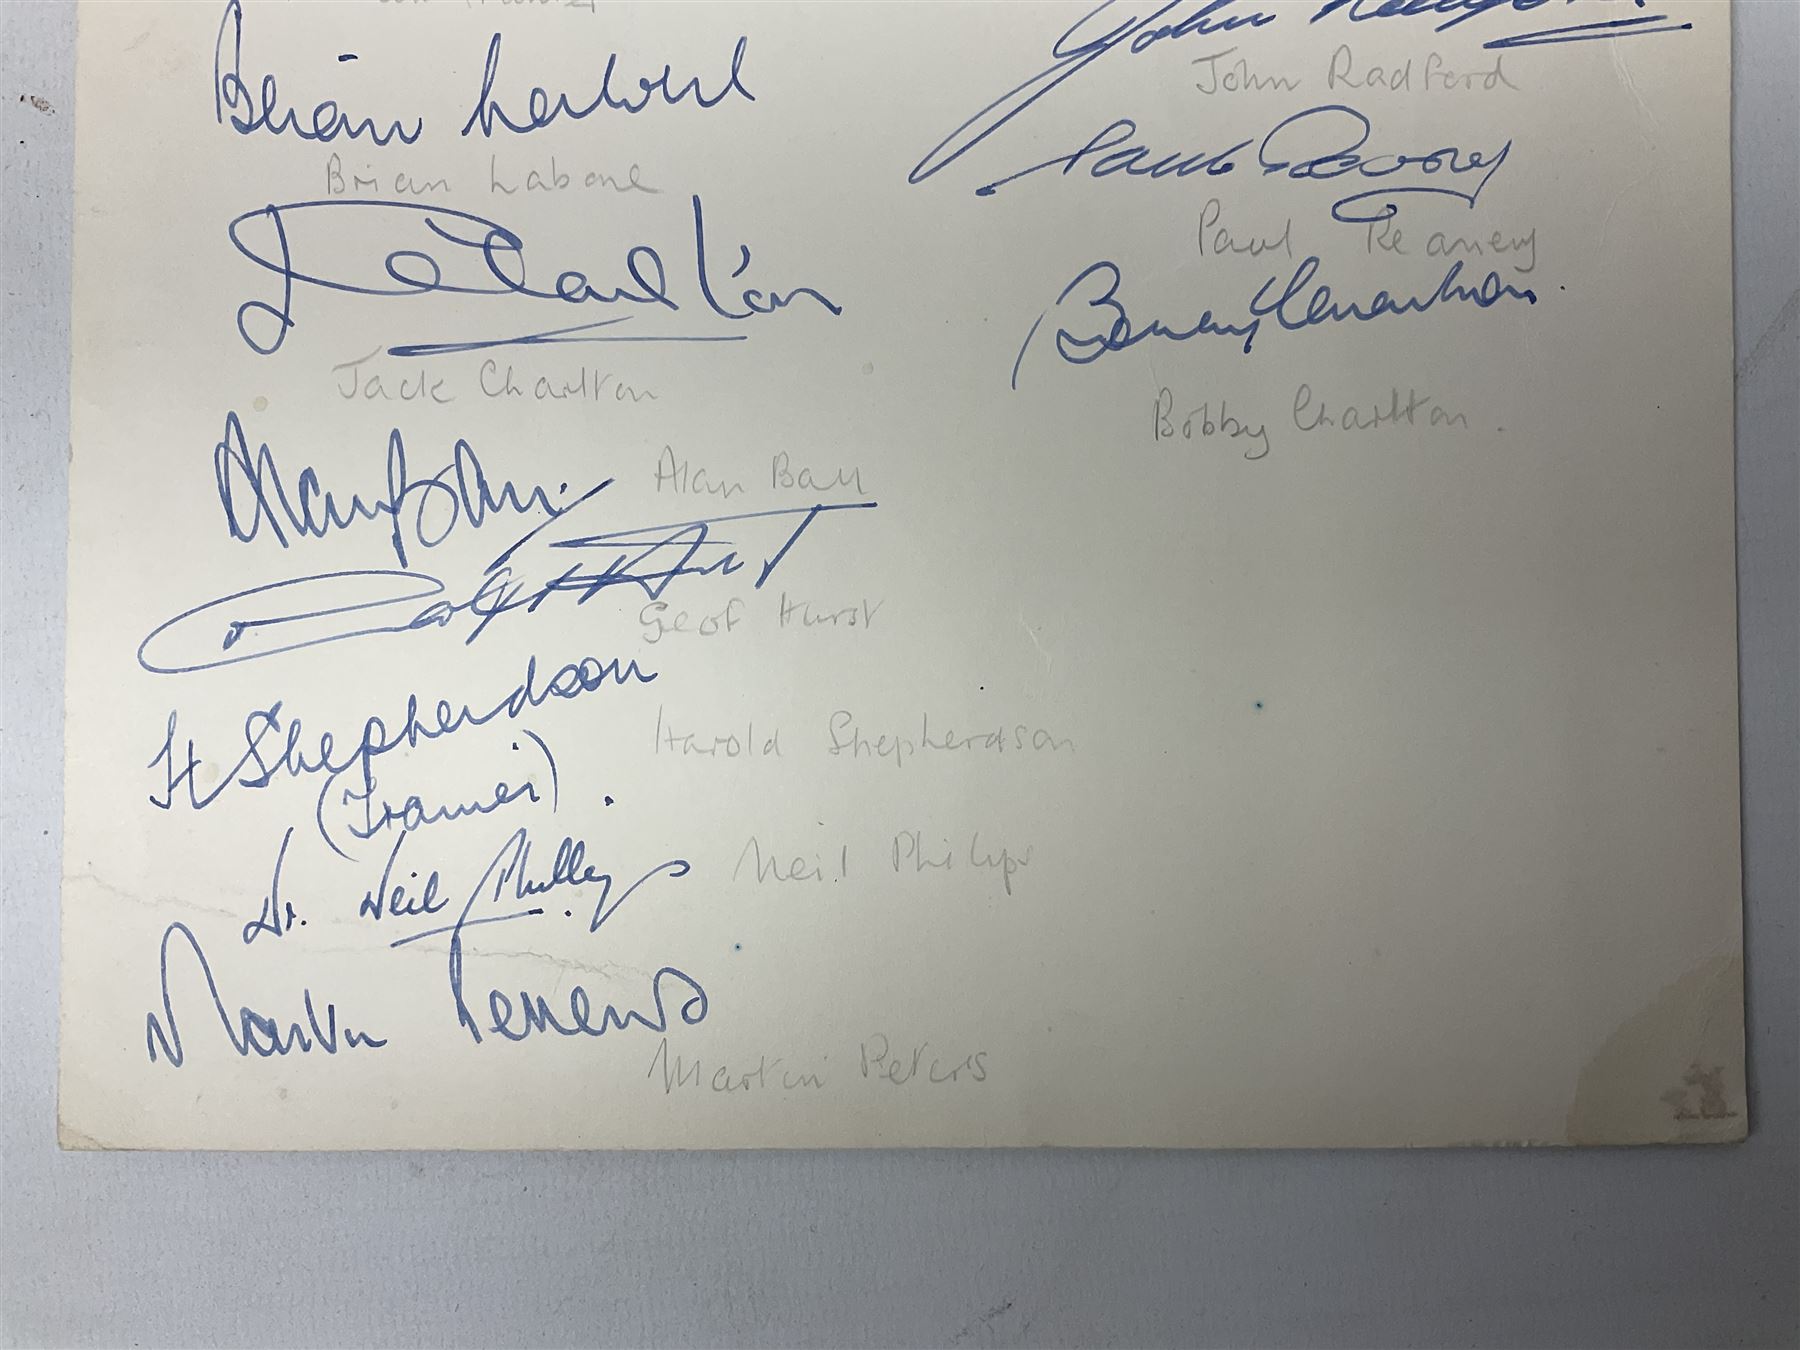 Brian Labone
Brian Labone
J Charlton
Jack Charlton
Alan Ball
Alan Ball
Geoff Hurst
Geof Hurst
H Shepherdson
(Trainer).
Harold Shepherdson
Dr. Neil Phillips
Neil Philips
Martin Peters
Martin Peters
John Radford
John Radford
Paul Reaney
Paul Reaney
Bobby Charlton.
Bobby Charlton.